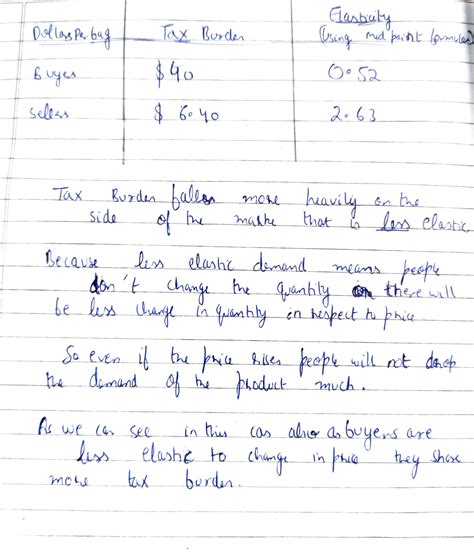 Elasticity
Dollars Per bag Tax Burden (Using mid point formula)
Buyer $40 0.52
Sellers $ 6.40 2.63
Tax Burden falls more heavily on the
side of the marke that is less elastic
Because less elastic demand means people
don't change the quantity there will
be less change in quantity in respect to price
So even if the price rises people will not drop
the demand of the product much.
As we can see in this cas also as buyers are
less elastic to change in price they share
more tax burden.